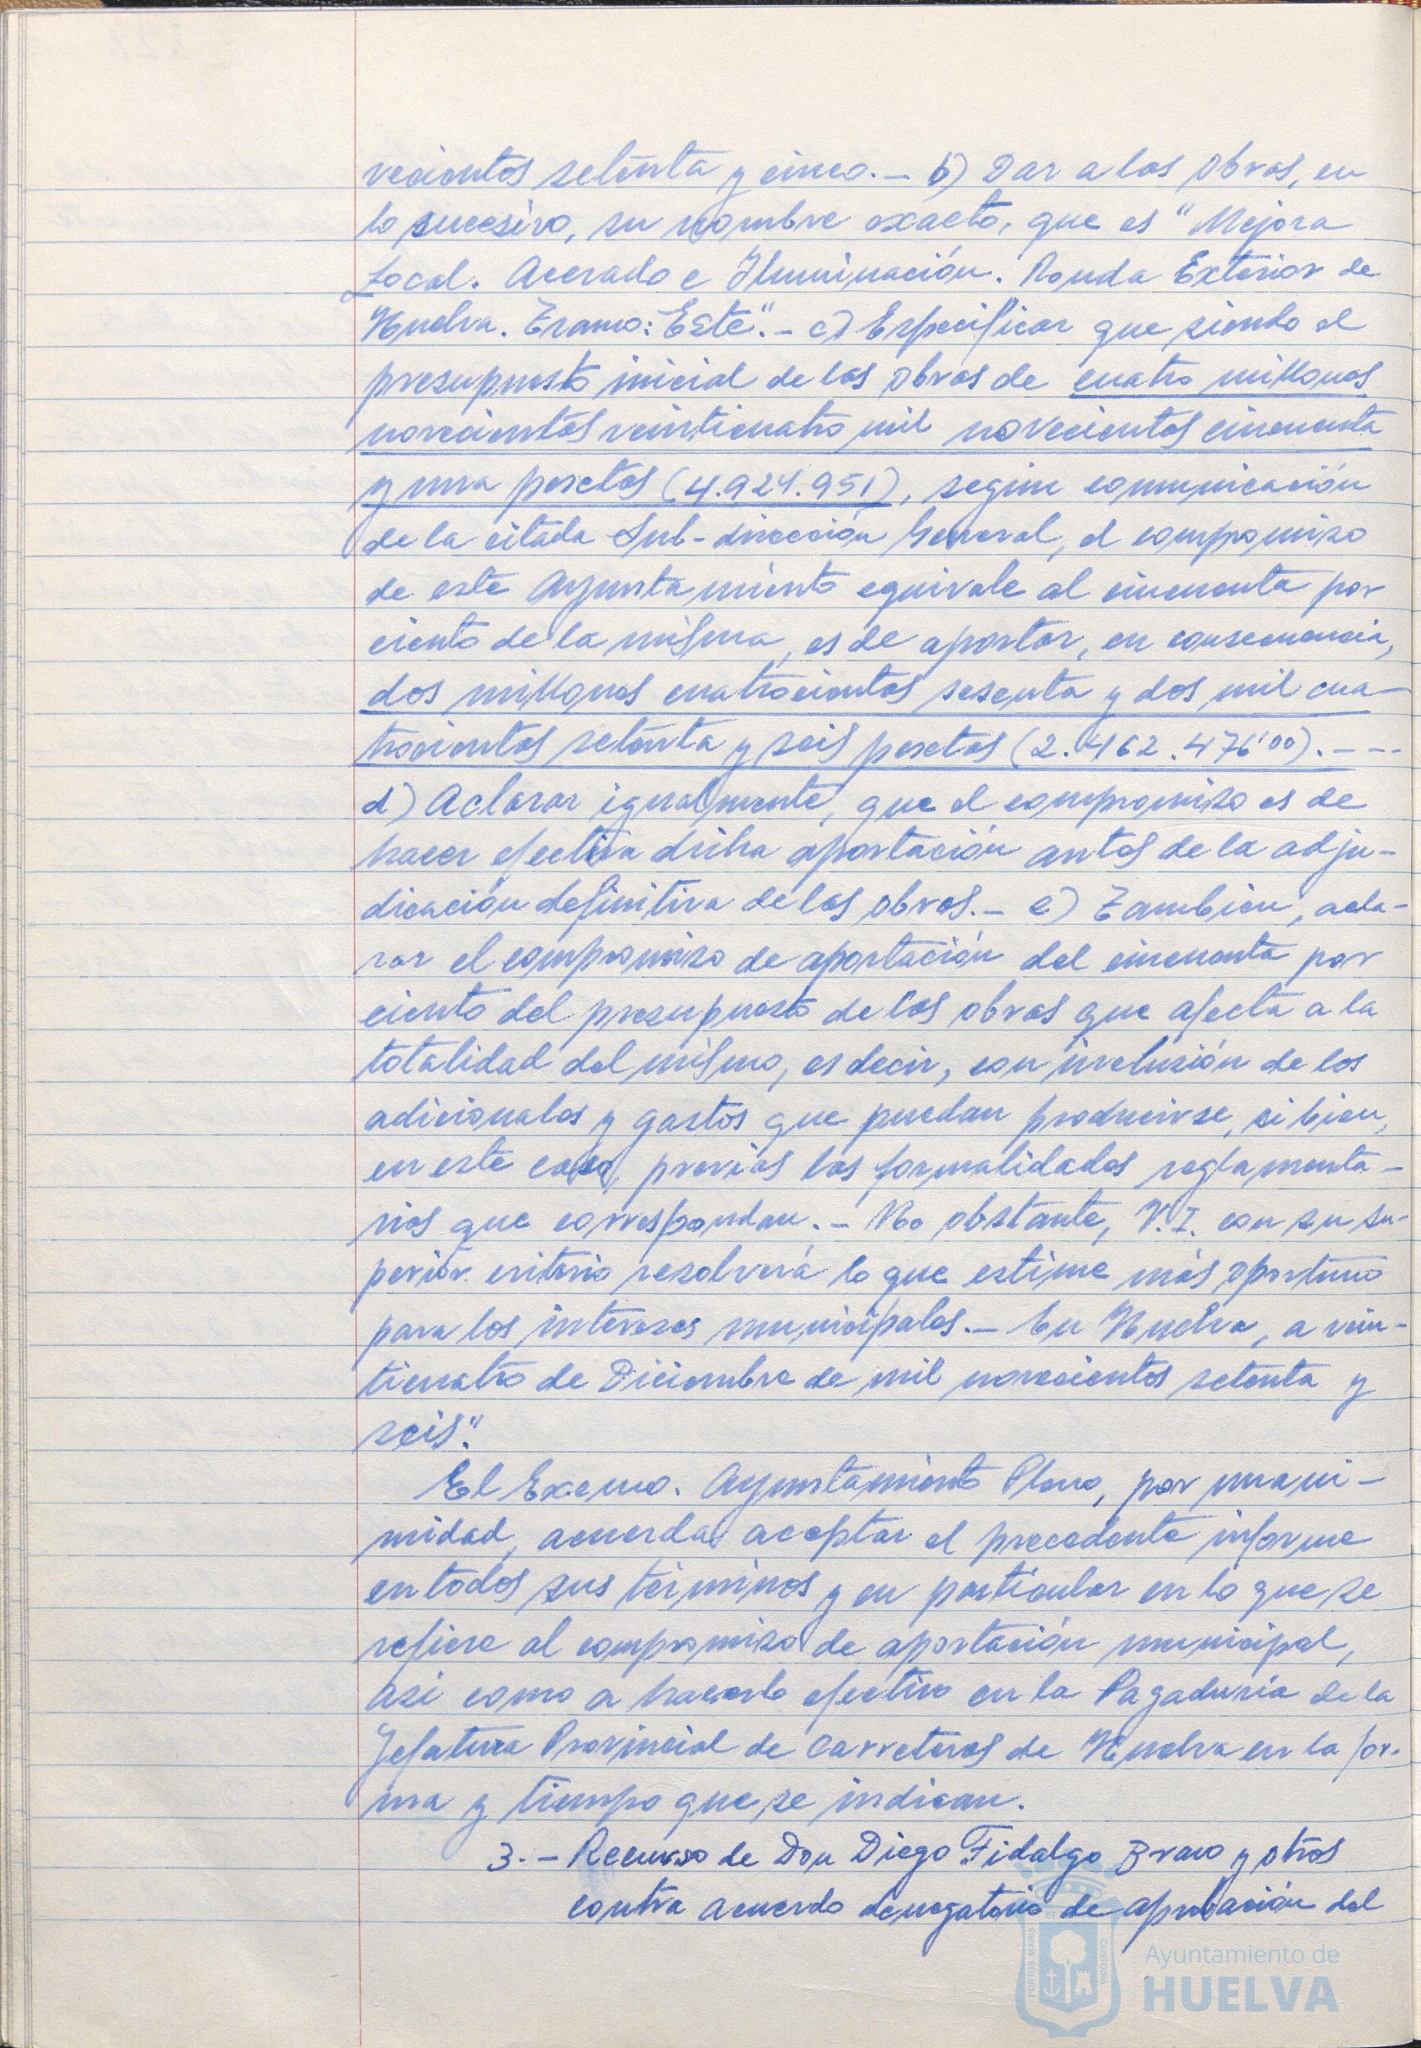 vecientos setenta y cinco.- b) Dar a las obras, en
lo sucesivo, su nombre exacto, que es "Mejora
Local. Acerado e Iluminación. Ronda Exterior de
Huelva. Tramo: Este".- c) Especificar que siendo el
presupuesto inicial de las obras de cuatro millones
novecientos veinticuatro mil novecientos cincuenta
y una pesetas (4.924.951), según comunicación
de la citada Sub-dirección General, el compromiso
de este Ayuntamiento equivale al cincuenta por
ciento de la misma, es de aportar, en consecuencia,
dos millones cuatrocientos sesenta y dos mil cua-
trocientos setenta y seis pesetas (2.462.476'00).---
d) Aclarar igualmente, que el compromiso es de
hacer efectiva dicha aportación antes de la adju-
dicación definitiva de las obras.- e) Tambien, acla-
rar el compromiso de aportación del cincuenta por
ciento del presupuesto de las obras que afecta a la
totalidad del mismo, es decir, con inclusión de los
adicionales y gastos que puedan producirse, si bien,
en este caso, previas las formalidades reglamenta-
rias que correspondan.- No obstante, V.I. con su su-
perior criterio resolverá lo que estime más oportuno
para los intereses municipales.- En Huelva, a vein-
ticuatro de Diciembre de mil novecientos setenta y
seis".
El Excmo. Ayuntamiento Pleno, por unani-
midad, acuerda aceptar el precedente informe
en todos sus términos y en particular en lo que se
refiere al compromiso de aportación municipal,
asi como a hacerlo efectivo en la Pagaduria de la
Jefatura Provincial de Carreteras de Huelva en la for-
ma y tiempo que se indican.
3.- Recurso de Don Diego Fidalgo Bravo y otros
contra acuerdo denegatorio de aprobación del
PORTUS MARIS
CUSTODIA
Ayuntamiento de
HUELVA